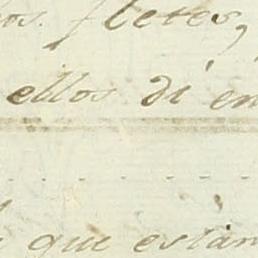 os. fletes,
ellos di en
que están